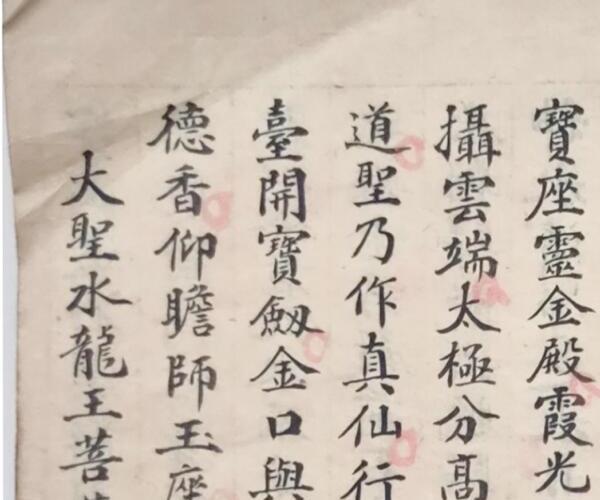 寶座靈金殿霞光
攝雲端太極分高
道聖乃作真仙行
臺開寶劔金口與
德香仰瞻師玉座
大聖水龍王菩